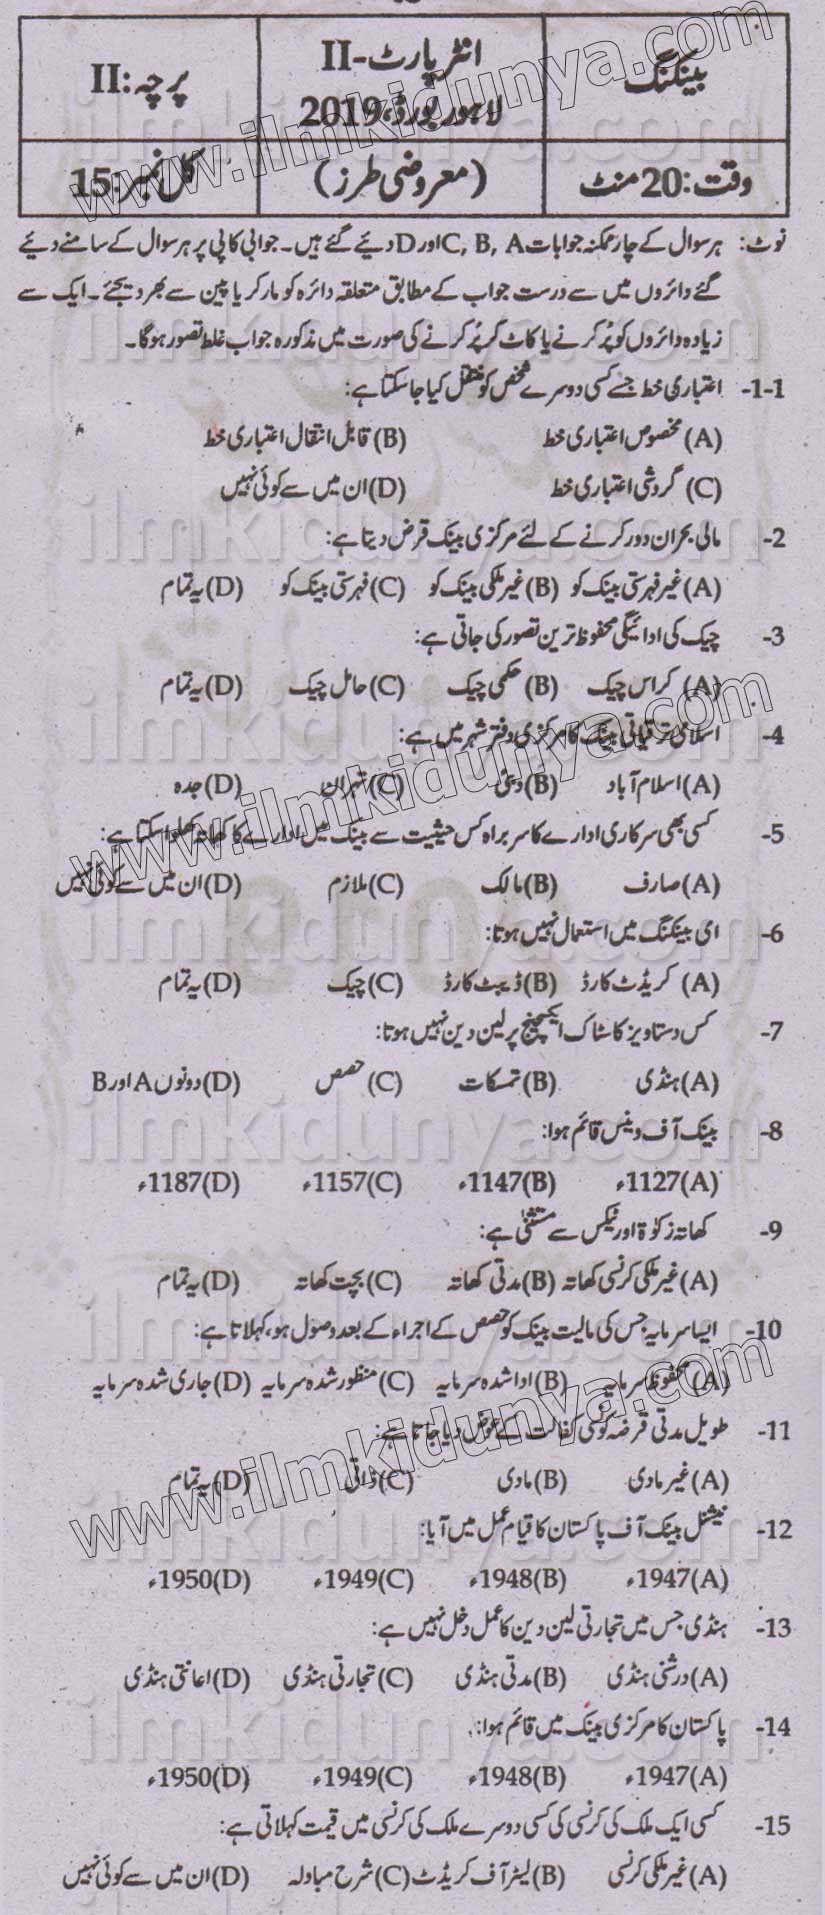 بینکنگ
انٹر پارٹ-II
لاہور بورڈ، 2019
پرچہ: II
وقت: 20 منٹ
(معروضی طرز)
کل نمبر: 15
نوٹ: ہر سوال کے چار ممکنہ جوابات C, B, A اور D دیئے گئے ہیں۔ جوابی کاپی پر ہر سوال کے سامنے دیئے
گئے دائروں میں سے درست جواب کے مطابق متعلقہ دائرہ کو مارکر یا پین سے بھر دیجئے۔ ایک سے
زیادہ دائروں کو پُر کرنے یا کاٹ کر پُر کرنے کی صورت میں مذکورہ جواب غلط تصور ہوگا۔
1-1- اعتباری خط جسے کسی دوسرے شخص کو منتقل کیا جا سکتا ہے:
(A) مخصوص اعتباری خط (B) قابل انتقال اعتباری خط
(C) گردشی اعتباری خط (D) ان میں سے کوئی نہیں
2- مالی بحران دور کرنے کے لئے مرکزی بینک قرض دیتا ہے:
(A) غیر فہرستی بینک کو (B) غیر ملکی بینک کو (C) فہرستی بینک کو (D) یہ تمام
3- چیک کی ادائیگی محفوظ ترین تصور کی جاتی ہے:
(A) کراس چیک (B) حکمی چیک (C) حامل چیک (D) یہ تمام
4- اسلامی ترقیاتی بینک کا مرکزی دفتر شہر میں ہے:
(A) اسلام آباد (B) دبئی (C) تہران (D) جدہ
5- کسی بھی سرکاری ادارے کا سربراہ کس حیثیت سے بینک میں ادارے کا کھاتہ کھلوا سکتا ہے:
(A) صارف (B) مالک (C) ملازم (D) ان میں سے کوئی نہیں
6- ای بینکنگ میں استعمال نہیں ہوتا:
(A) کریڈٹ کارڈ (B) ڈیبٹ کارڈ (C) چیک (D) یہ تمام
7- کس دستاویز کا سٹاک ایکسچینج پر لین دین نہیں ہوتا:
(A) ہنڈی (B) تمسکات (C) حصص (D) دونوں A اور B
8- بینک آف وینس قائم ہوا:
(A) 1127ء (B) 1147ء (C) 1157ء (D) 1187ء
9- کھاتہ زکوٰۃ اور ٹیکس سے مستثنیٰ ہے:
(A) غیر ملکی کرنسی کھاتہ (B) مدتی کھاتہ (C) بچت کھاتہ (D) یہ تمام
10- ایسا سرمایہ جس کی مالیت بینک کو حصص کے اجراء کے بعد وصول ہو، کہلاتا ہے:
(A) محفوظ سرمایہ (B) ادا شدہ سرمایہ (C) منظور شدہ سرمایہ (D) جاری شدہ سرمایہ
11- طویل مدتی قرضہ کو کسی کفالت کے عوض دیا جاتا ہے:
(A) غیر مادی (B) مادی (C) ذاتی (D) یہ تمام
12- نیشنل بینک آف پاکستان کا قیام عمل میں آیا:
(A) 1947ء (B) 1948ء (C) 1949ء (D) 1950ء
13- ہنڈی جس میں تجارتی لین دین کا عمل دخل نہیں ہے:
(A) درشنی ہنڈی (B) مدتی ہنڈی (C) تجارتی ہنڈی (D) اعانتی ہنڈی
14- پاکستان کا مرکزی بینک میں قائم ہوا:
(A) 1947ء (B) 1948ء (C) 1949ء (D) 1950ء
15- کسی ایک ملک کی کرنسی کی کسی دوسرے ملک کی کرنسی میں قیمت کہلاتی ہے:
(A) غیر ملکی کرنسی (B) لیٹر آف کریڈٹ (C) شرح مبادلہ (D) ان میں سے کوئی نہیں
www.ilmkidunya.com
ilmkidunya.com